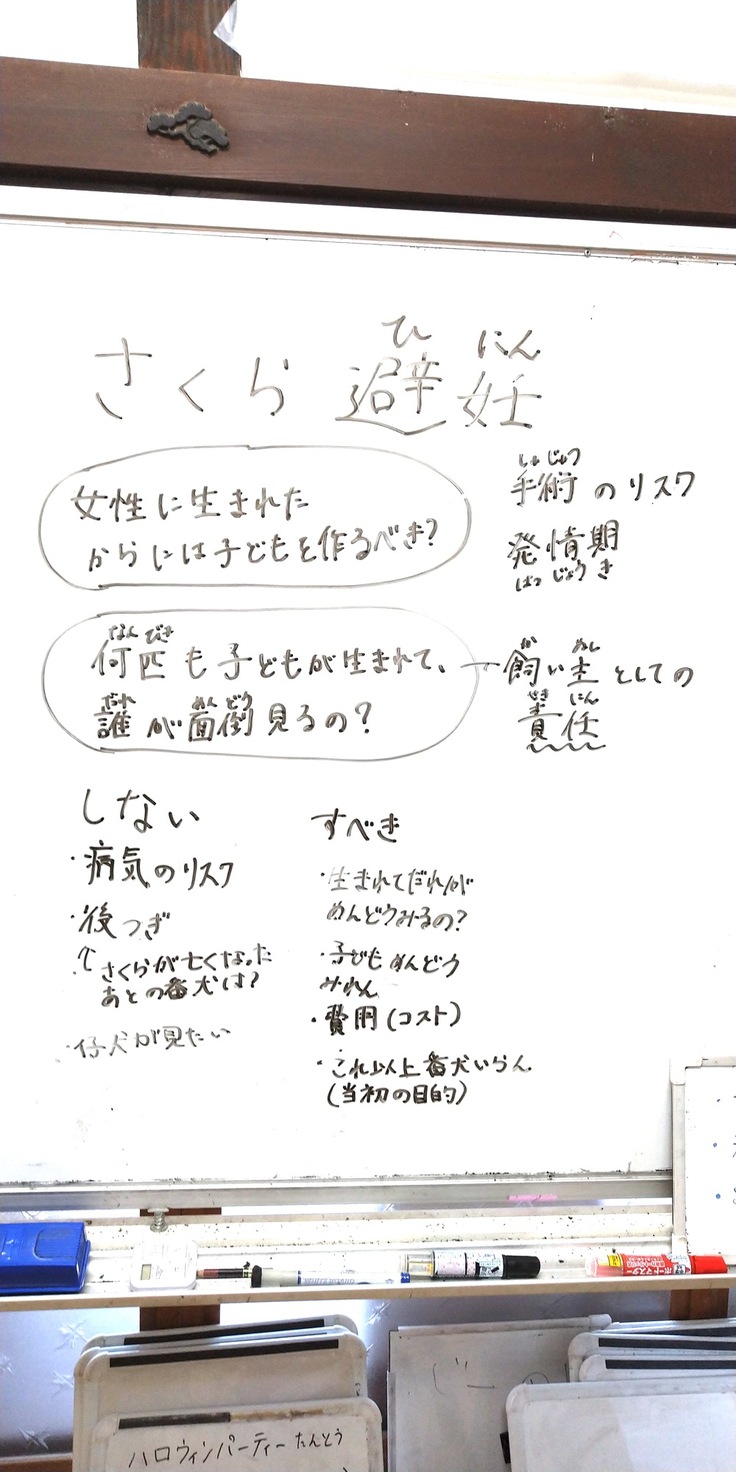 さくら 避妊
ひ にん
女性に生まれた
からには子どもを作るべき?
手術のリスク
しゅじゅつ
発情期
はつじょうき
何匹も子どもが生まれて、
なんびき
誰が面倒見るの?
だれ めんどう
飼い主としての
か ぬし
責任
せき にん
しない
・病気のリスク
・後つぎ
・↑さくらが亡くなった
あとの番犬は?
・仔犬が見たい
すべき
・生まれてだれが
めんどうみるの?
・子どもめんどう
みれん
・費用(コスト)
・これ以上番犬いらん
(当初の目的)
ボードマスター
ハロウィンパーティーたんとう